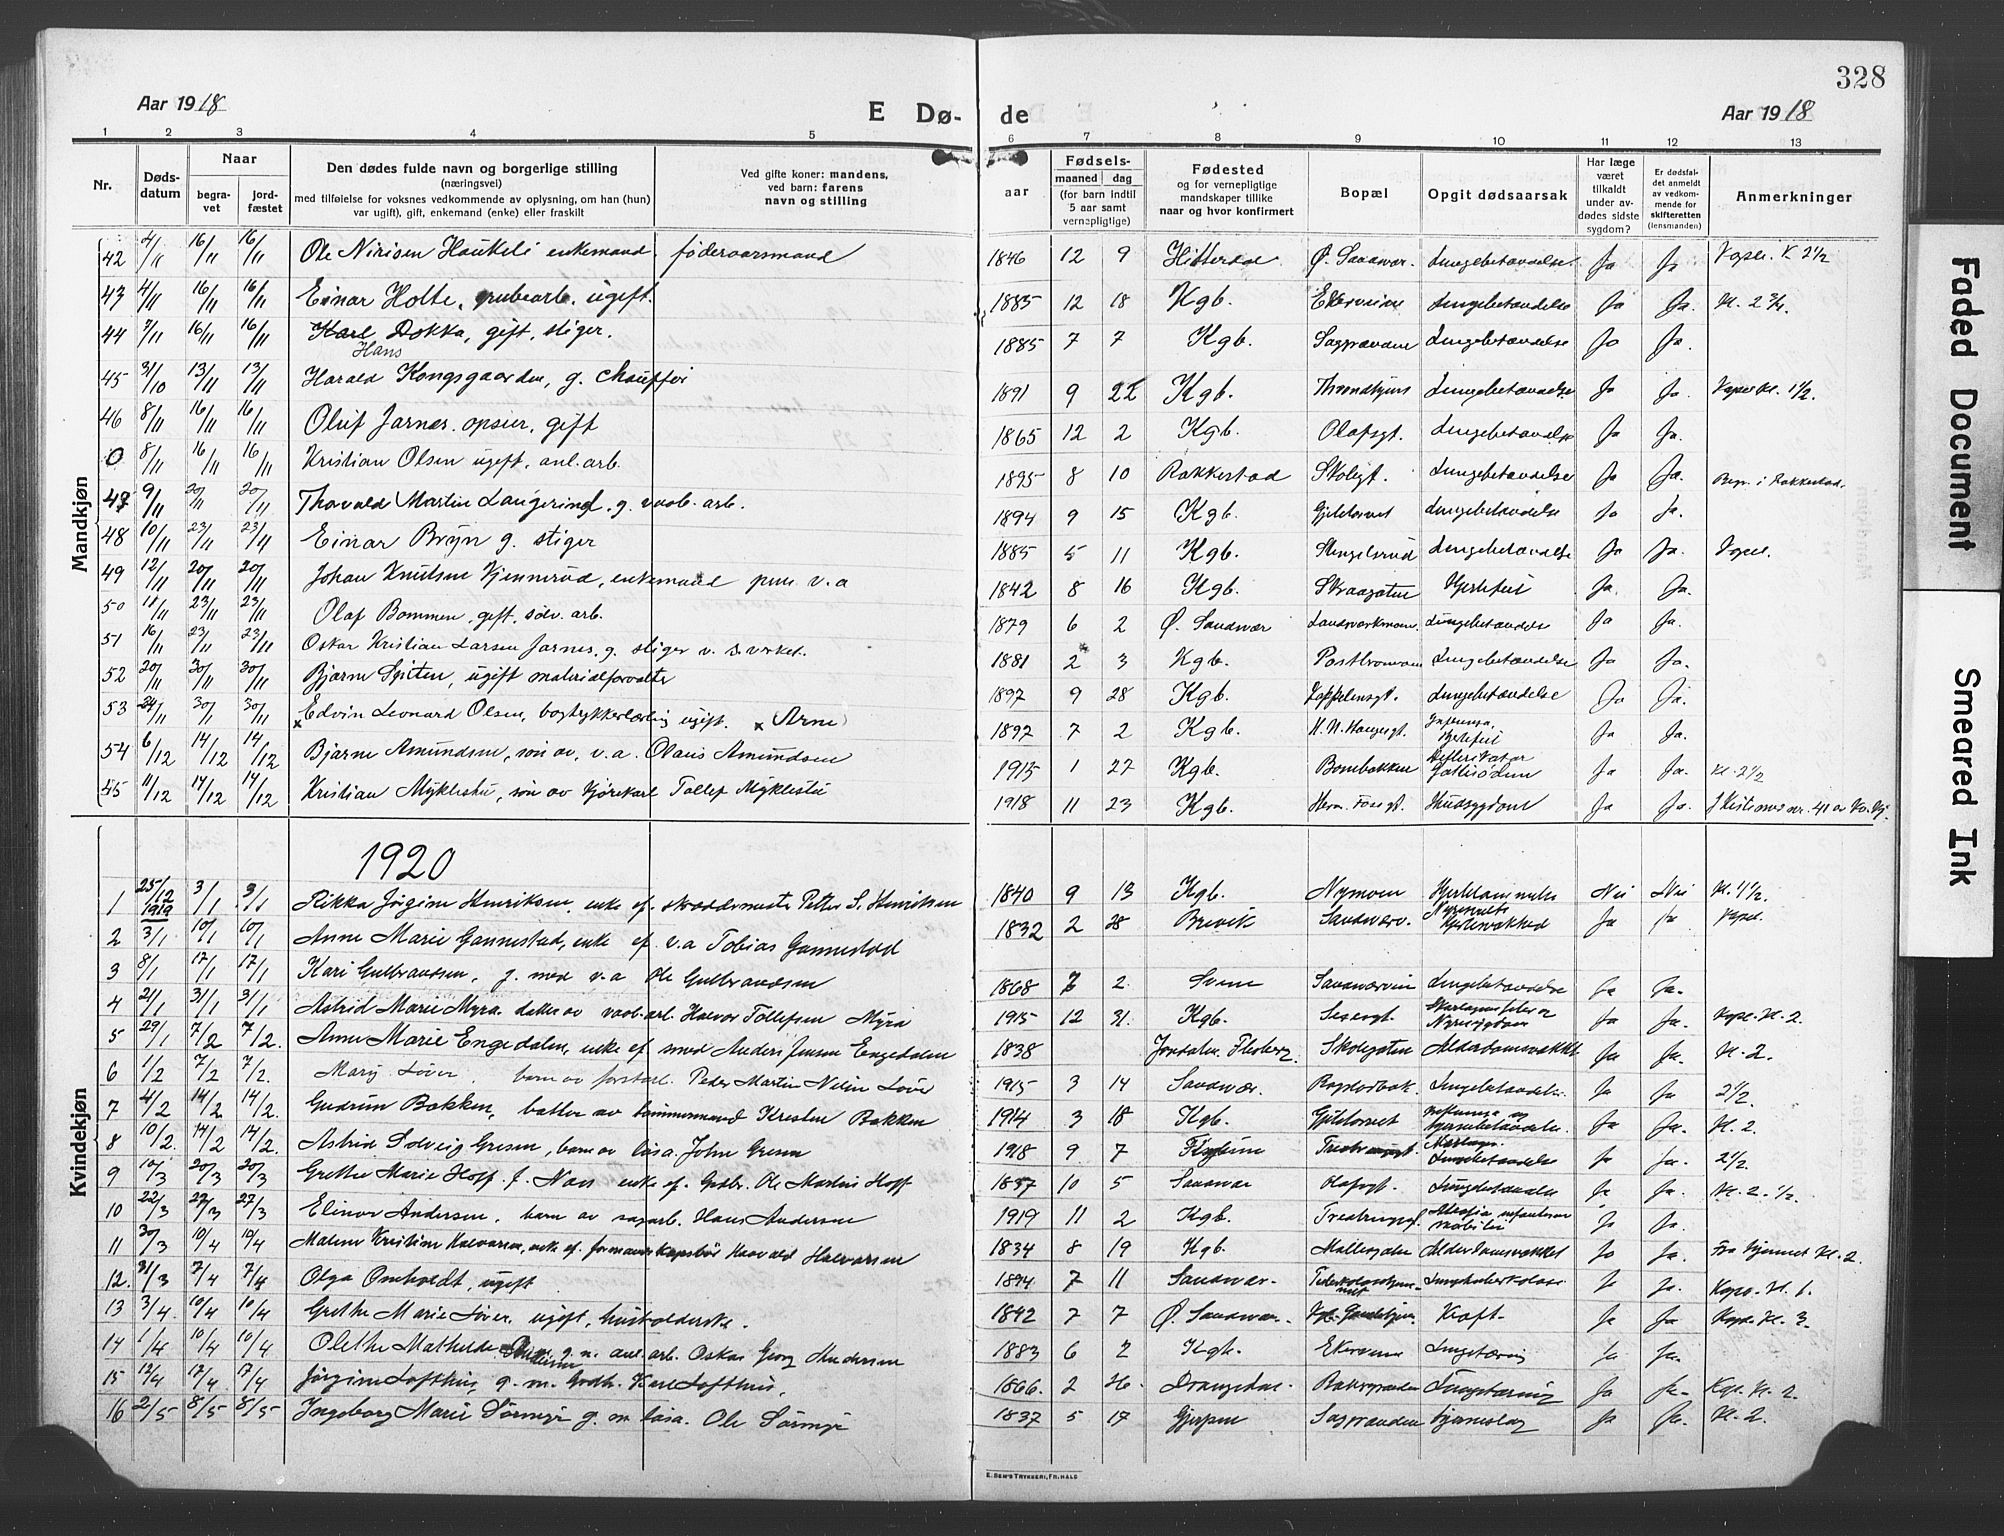 328
Aar 1918
E Dø-
de
Aar 1918
1 2 3 4 5 6 7 8 9 10 11 12 13
Nr.
Døds-
datum
Naar
begra-
vet
jord-
fæstet
Den dødes fulde navn og borgerlige stilling
(næringsvei)
med tilføielse for voksnes vedkommende av oplysning, om han (hun)
var ugift), gift, enkemand (enke) eller fraskilt
Ved gifte koner: mandens,
ved barn: farens
navn og stilling
aar
Fødsels-
maaned dag
(for barn indtil
5 aar samt
vernepligtige)
Fødested
og for vernepligtige
mandskaper tillike
naar og hvor konfirmert
Bopæl
Opgit dødsaarsak
Har læge
været
tilkaldt
under av-
dødes sidste
sygdom?
Er dødsfal-
det anmeldt
av vedkom-
mende for
skifteretten
(lensmanden)
Anmerkninger
Mandkjøn
42 4/11 16/11 16/11 Ole Nirisen Haukeli enkemand, føderaadsmand 1846 12 9 Hitterdal Ø. Sandsvær. Lungebetændelse Ja Ja Kapel. K 2 1/2
43 4/11 16/11 16/11 Einar Holte, grubearb. ugift. 1885 12 18 Kgb. Lungebetændelse Ja Ja. Kl. 2 3/4.
44 7/11 16/11 16/11 Karl Dokka, gift, stiger. 1885 7 7 Kgb. Lungebetændelse Ja Ja.
Hans
45 31/10 13/11 13/11 Harald Kongsgaarden, g. Chauffør 1891 9 22 Kgb. Lungebetændelse Ja Ja. Kapel Kl. 1 1/2.
46 8/11 16/11 16/11 Oluf Jarnes. opsier, gift 1865 12 2 Kgb. Olafsgt. Lungebetændelse Ja Ja.
0 8/11 16/11 16/11 Kristian Olsen ugift, anl. arb. 1895 8 10 Rakkestad Skolegt. Lungebetændelse Ja Ja. Begr. i Rakkestad.
47 9/11 20/11 20/11 Thorvald Martin Langerind. g. vaab. arb. 1894 9 15 Kgb. Lungebetændelse Ja Ja.
48 10/11 23/11 23/11 Einar Bryn g. stiger 1885 5 11 Kgb. Stengelsrud Lungebetændelse Ja Ja. Kapel.
49 12/11 20/11 20/11 Johan Knutsen Kjennerud, enkemand pens. v. a 1842 8 16 Kgb. Skraagaten Hjertefeil Ja. Ja.
50 11/11 23/11 23/11 Olaf Bommen, gift, sølv. arb. 1879 6 2 Ø. Sandsvær Lungebetændelse Ja Ja.
51 16/11 23/11 23/11 Oskar Kristian Larsen Jarnes, g. stiger v. s. verket. 1881 2 3 Kgb. Lungebetændelse Ja Ja.
52 20/11 30/11 30/11 Bjarne Spiten, ugift materialforvalter 1897 9 28 Kgb. Lungebetændelse Ja Ja.
53 24/11 30/11 30/11 x Edvin Leonard Olsen, bogtrykkerlærling ugift. x Arne 1892 7 2 Kgb. Influensa, Hjertefeil Ja Ja.
54 6/12 14/12 14/12 Bjarne Amundsen, søn av, v. a. Olaus Amundsen 1915 1 27 Kgb. Bombakken Ja Ja. Kl. 2 1/2
45 11/12 14/12 14/12 Kristian Myklestu, søn av kjørekarl Tollef Myklestu 1918 11 23 Kgb. Herm. Fossgt. Hudsygdom Ja Ja.
Kvindekjøn
1920
1 25/12 1919 3/1 3/1 Rikka Jørgine Henriksen, enke ef. skræddermester Petter S. Henriksen 1840 9 13 Kgb. Nymoen Hjertelammelse Nei Nei Kl. 1 1/2.
2 3/1 10/1 10/1 Anne Marie Gannestad, enke ef. v. a Tobias Gannestad 1832 2 28 Brevik Sandsværv. Ja Ja Kapel.
3 8/1 17/1 17/1 Kari Gulbrandsen, g. med v. a Ole Gulbrandsen 1868 7 2 Svene Sandsværvn Lungebetændelse Ja Ja.
4 21/1 31/1 31/1 Astrid Marie Myra. datter av vaab. arb. Halvor Tollefsen Myra 1915 12 31. Kgb. Skarlagensfeber og Nyresygdom Ja Ja. Kapel. Kl. 2.
5 29/1 7/2 7/2. Anne Marie Engedalen, enke ef. smed Anders Jensen Engedalen 1838 Jondalen Flesberg Skolegaten Alderdomsvakhet Ja Ja. Kl. 2.
6 1/2 7/2 7/2. Mary Løver. barn av forstarb. Peder Martin Nilsen Løver 1915 3 14 Sandsvær. Lungebetændelse. Ja Ja. 2 1/2
7 4/2 14/2 14/2. Gudrun Bakken, datter av tømmermand Kristen Bakken 1914 3 18 Kgb. Influensa og hjernebetændelse. Ja Ja. Kl. 2.
8 10/2. 14/2 14/2. Astrid Solveig Gresen, barn av løsa. John Gresen 1918 9 7 Lungebetændelse Ja Ja. 2 1/2.
9 10/3 20/3 20/3 Grethe Marie Hoff f. Næs enke ef. Grdbr. Ole Martin Hoff 1837 10 5 Sandsvær Olafsgt. Lungebetændelse Ja Ja. Kl. 2. 1/2.
10 22/3 27/3 27/3 Elinor Andersen, barn av sagarb. Hans Andersen 1919 11 2 Kgb. Ja Ja.
11 30/3 10/4 10/4 Malene Kristine Halvorsen, enke ef. Haavald Halvorsen 1834 8 19 Kgb. Møllergaten Alderdomsvakhet Ja Ja. Fra hjemmet Kl. 2.
12. 31/3 7/4 7/4 Olga Omholdt, ugift 1894 7 11 Sandsvær. Lungetuberkulose Ja Ja. Kapel. Kl. 6.
13 3/4. 10/4 10/4 Grethe Marie Løver. ugift, husholderske. 1842 7 7 Ø. Sandsvær. Kræft. Ja Ja. Kapel. Kl. 3.
14 1/4 10/4 10/4 Olethe Mathilde Andersen g. m. anl. arb. Oskar Georg Andersen 1883 6 2 Kgb. Lungetæring Ja Ja.
15 12/4 17/4 17/4 Jørgine Lofthus, g. m. Grdb. Karl Lofthus, 1866. 2 26. Drangedal. Lungetæring Ja Ja. Kapl. Kl. 2.
16 2/5 8/5 8/5 Ingeborg Marie Sørmyr g. m. løsa. Ole Sørmyr 1837 5 17 Gjerpen Hjerneslag Ja Ja. Kl. 2.
E. SEM'S TRYKKERI, FR.HALD
Faded Document
Smeared Ink